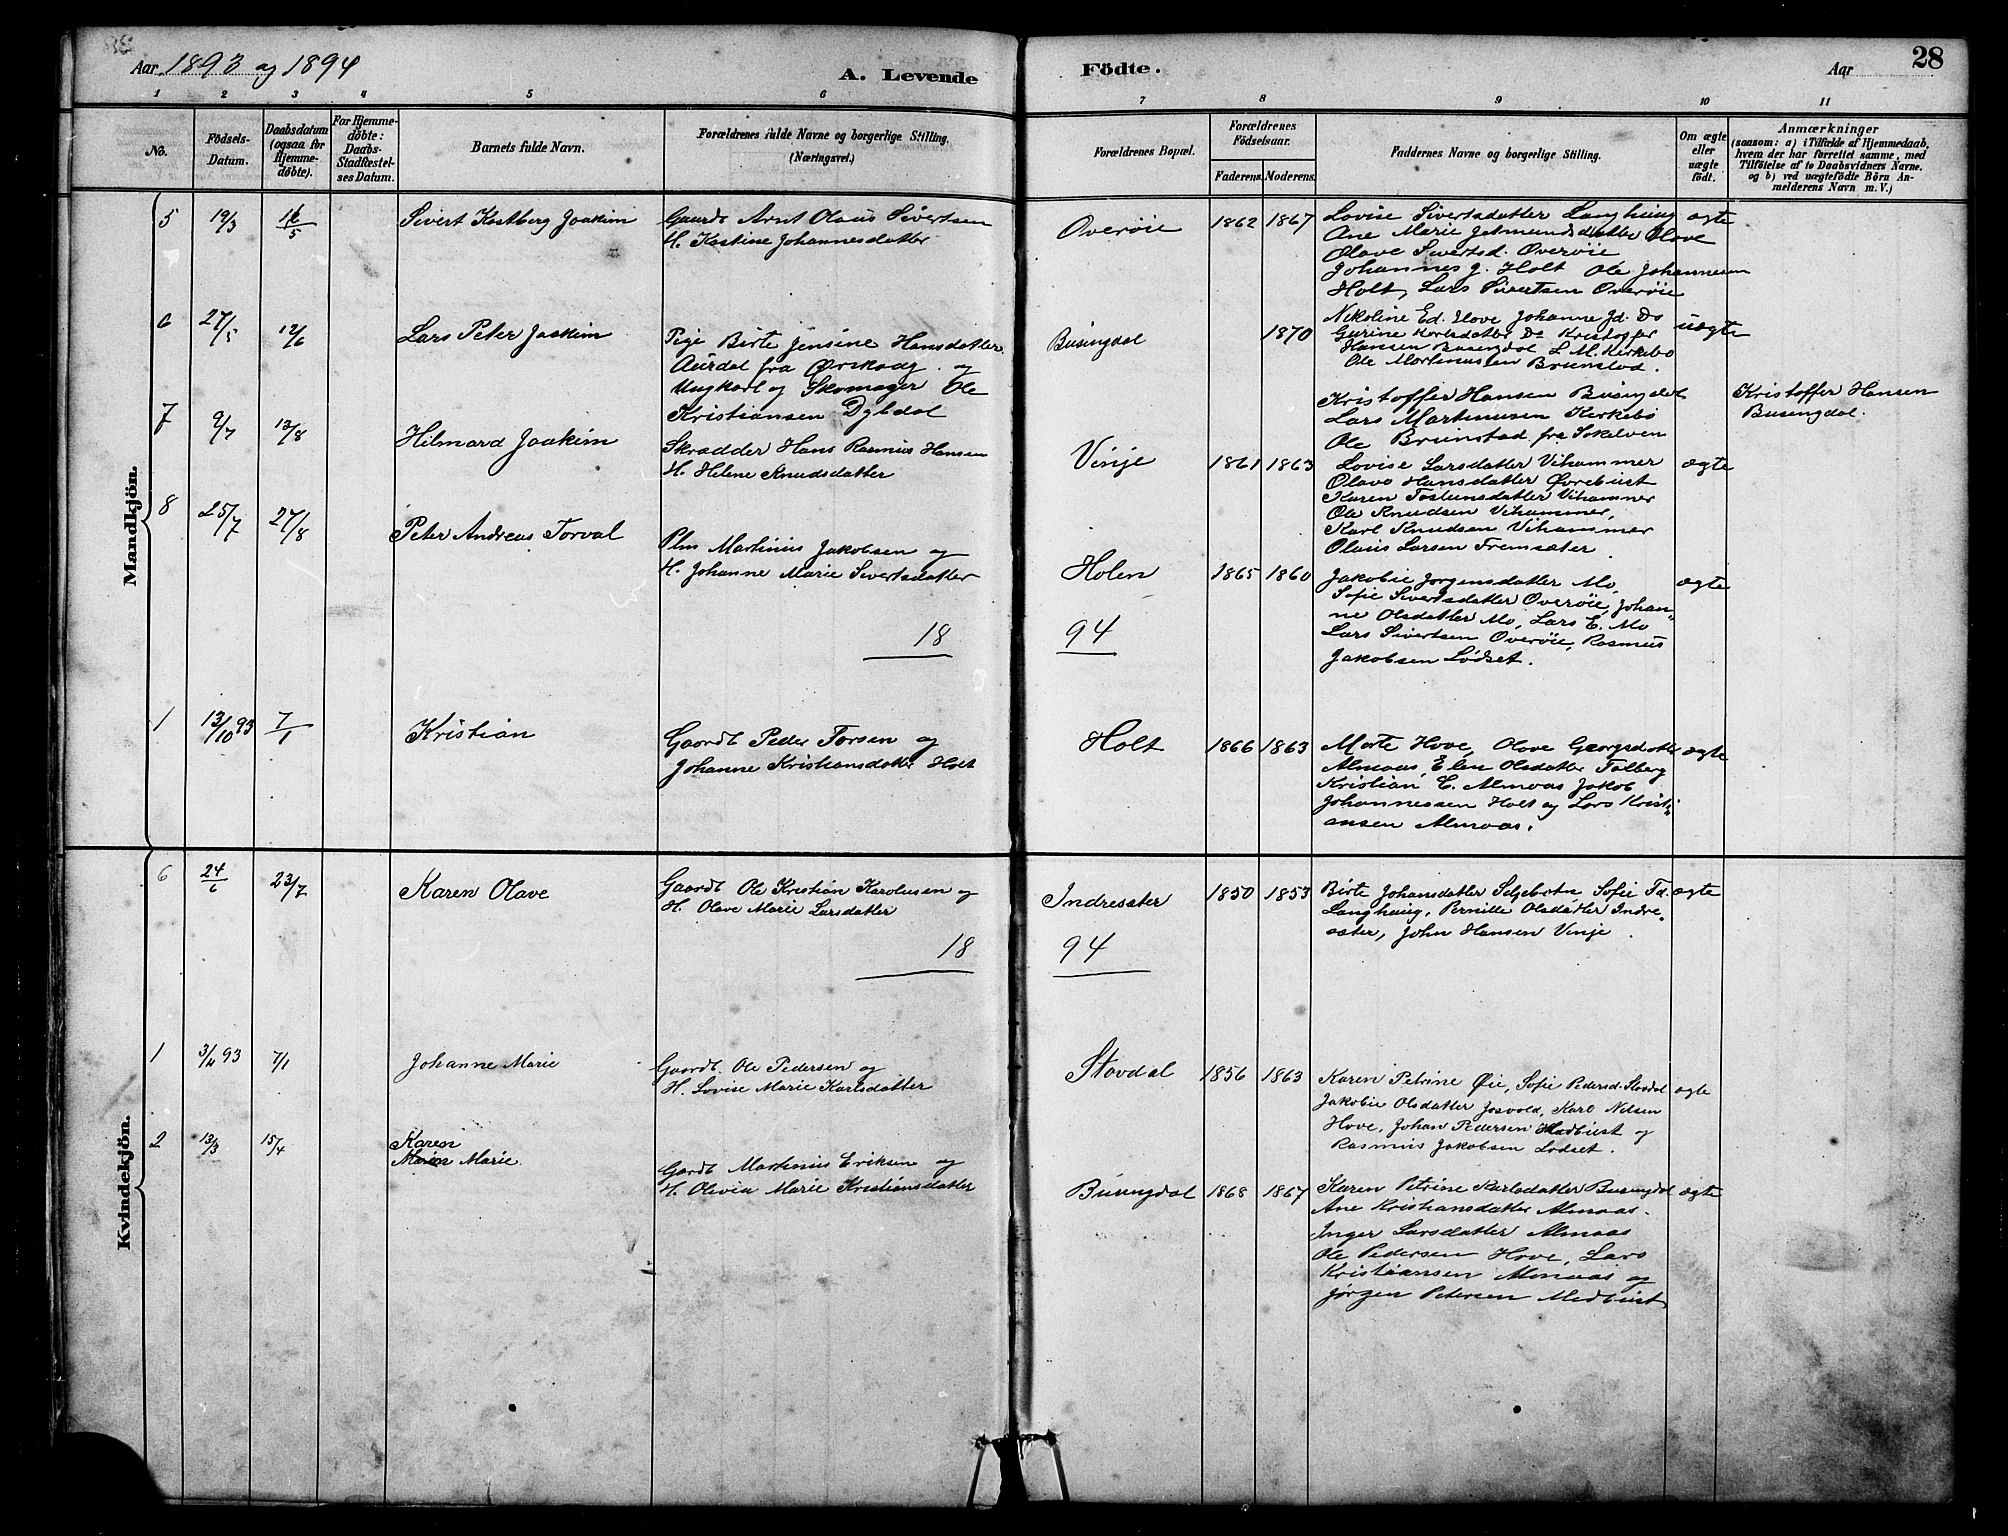 28
Aar 1893 og 1894
A. Levende
Födte.
Aar
1 2 3 4 5 6 7 8 9 10 11
No.
Födsels-Datum.
Daabsdatum (ogsaa for Hjemme-döbte).
For Hjemme-døbte: Daabs-Stadfæstel-ses Datum.
Barnets fulde Navn.
Forældrenes fulde Navne og borgerlige Stilling.
(Næringsvei.)
Forældrenes Bopæl.
Forældrenes Födselsaar.
Faderens. Moderens.
Faddernes Navne og borgerlige Stilling.
Om ægte eller uægte födt.
Anmærkninger
(saasom: a) i Tilfælde af Hjemmedaab,
hvem der har forrettet samme, med
Tilföielse af to Daabsvidners Navne.
og b) ved uægtefödte Börn An-
melderens Navn m. V.)
Mandkjön.
5 19/3 /5 Sivert Kastberg Joakim
Gaardb Arnt Olaus Sivertsen
H. Kastine Johannesdatter
Overøie 1862 1867
Lovise Sivertsdatter Langhaug
Ane Marie Jetmundsdatter Hove
Olave Sivertsd. Overøie
Johannes J. Holt Ole Johannesen
Holt, Lars Sivertsen Overøie
ægte
6 27/5 12/6 Lars Peter Joakim
Pige Birte Jensine Hansdatter
Aurdal fra Ørskog og
Ungkarl og Skomager Ole
Kristiansen Dybdal
Busengdal 1870
Nikoline Ed. Hove Johanne Jd. Do
Gurine Karlsdatter Do Kristoffer
Hansen Busengdal L. M. Kirkebø
Ole Martinussen Brunstad.
uægte
Kristoffer Hansen Busengdal
Lars Martinusen Kirkebø
Ole Brunstad fra Søkelven
Kristoffer Hansen
Busengdal.
7 9/7 13/8 Hilmard Joakim
Skrædder Hans Rasmus Hansen
H. Helene Knudsdatter
Vinje 1861 1863
Lovise Larsdatter Vihammer
Olave Hansdatter Ørebust
Karen Tostensdatter Vihammer
Ole Knudsen Vihammer,
Karl Knudsen Vihammer
Olaus Larsen Fremsæter.
ægte
8 25/7 27/8 Peter Andreas Torval
Plm Martinus Jakobsen og
H. Johanne Marie Sivertsdatter
Holen 1865 1860
Jakobie Jørgensdatter Mo,
Sofie Sivertsdatter Overøie, Johan-
ne Olsdatter Mo, Lars E. Mo
Lars Sivertsen Overøie, Rasmus
Jakobsen Lødset.
ægte
18 94
1 13/10 93 7/1 Kristian
Gaardb Peder Torsen og
Johanne Kristiansdatter Holt
Holt 1866 1863
Marte Hove, Olave Georgsdatter
Almaas, Elen Olsdatter Tolberg
Kristian E. Almaas Jakob
Johannessen Holt og Lars Kristi-
ansen Almaas.
ægte
Kvindekjön.
6 24/6 23/7 Karen Olave
Gaardb Ole Kristian Karolusen og
H. Olave Marie Larsdatter
Indresæter 1850 1853
Birte Johansdatter Seljebotn, Sofie Td.
Langhaug, Pernille Olsdatter Indre-
sæter, John Hansen Vinje.
ægte
18 94
1 93 7/1 Johanne Marie
Gaardb. Ole Pedersen og
H. Lovise Marie Karlsdatter
Stavdal 1856 1863
Karen Petrine Øie, Sofie Pedersd. Stavdal
Jakobie Olsdatter Josvold, Karl Nilsen
Hove, Johan Pedersen Medbust og
Rasmus Jakobsen Lødset.
ægte
2 13/3 15/4 Karen
Maren Marie
Gardb Martinus Eriksen og
H. Olivia Marie Kristiansdatter
Busengdal 1868 1867
Karen Petrine Karlsdatter Busengdal
Ane Kristiansdatter Almaas.
Inger Larsdatter Almaas
Ole Pedersen Hove, Lars
Kristiansen Almaas og
Jørgen Petersen Medbust
ægte